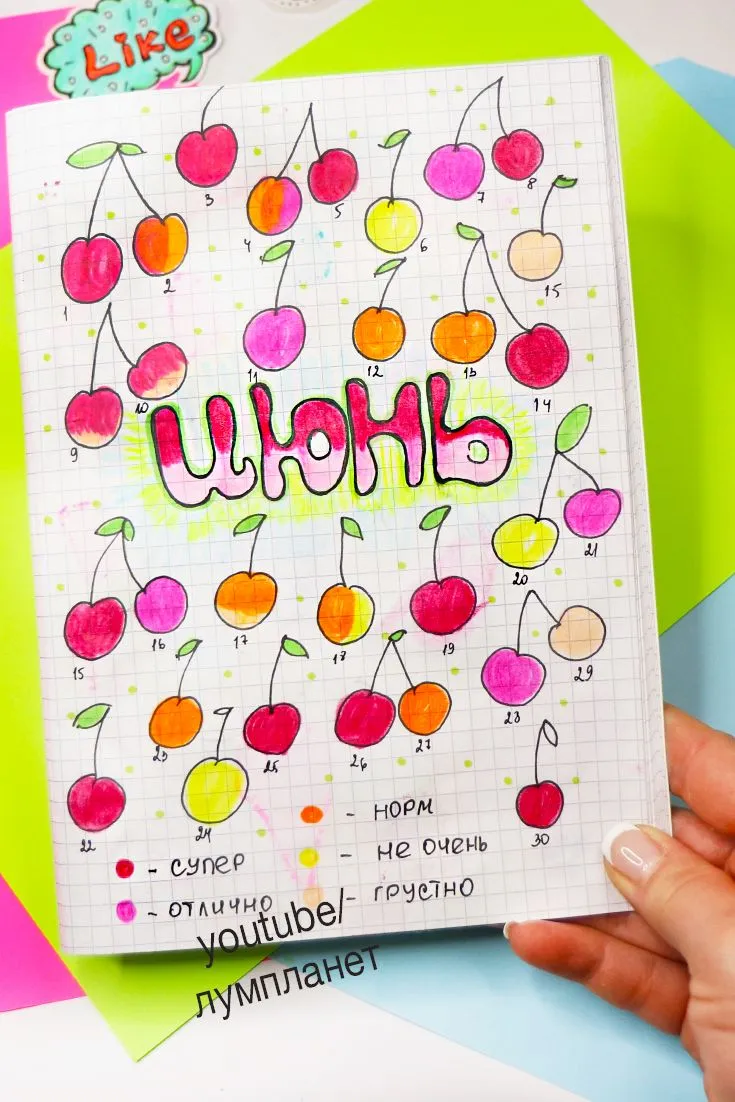 Like
3
7
8
4
5
6
2
15
1
11
12
13
10
14
9
июнь
20
21
16
17
18
19
15
29
23
28
25
26
27
22
24
30
- НОРМ
- СУПЕР
- НЕ ОЧЕНЬ
- ОТЛИЧНО
- ГРУСТНО
youtube/
лумпланет